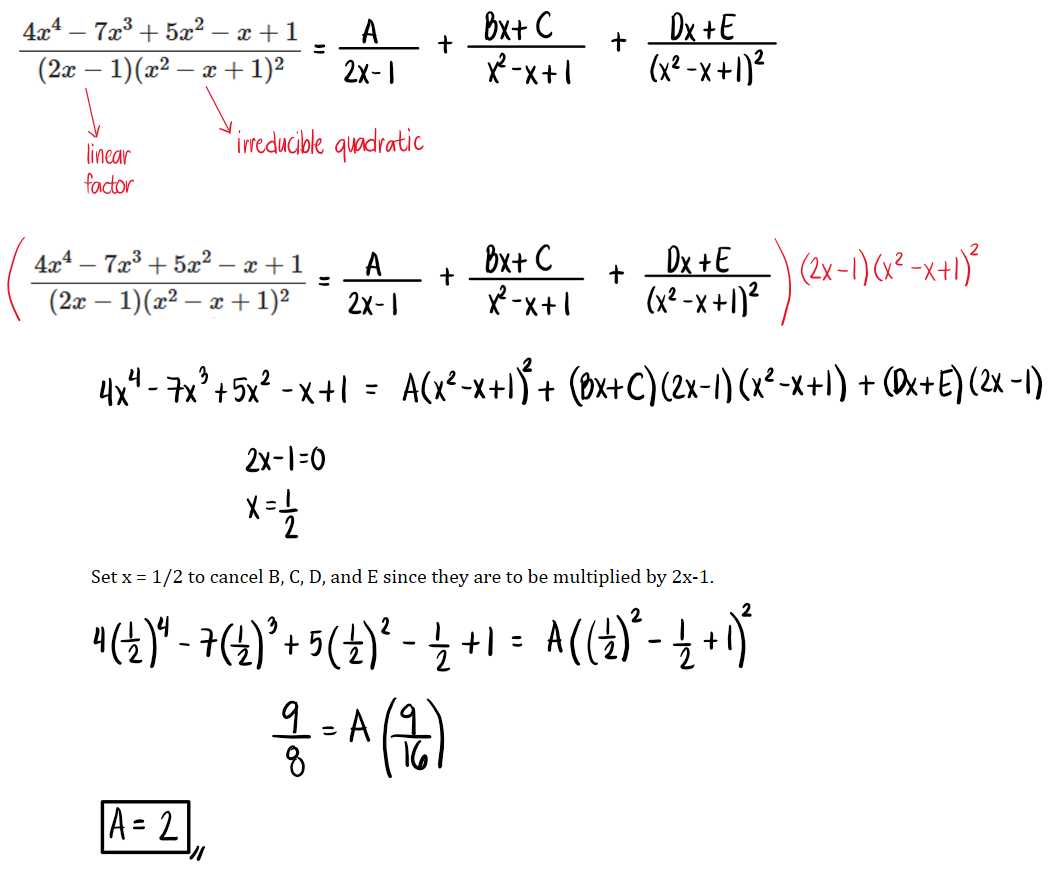 (4x⁴ − 7x³ + 5x² − x + 1)/((2x − 1)(x² − x + 1)²) = A/(2x-1) + (Bx+C)/(x²-x+1) + (Dx+E)/(x²-x+1)²
linear factor
irreducible quadratic
((4x⁴ − 7x³ + 5x² − x + 1)/((2x − 1)(x² − x + 1)²) = A/(2x-1) + (Bx+C)/(x²-x+1) + (Dx+E)/(x²-x+1)²) (2x-1)(x²-x+1)²
4x⁴ - 7x³ + 5x² - x + 1 = A(x²-x+1)² + (Bx+C)(2x-1)(x²-x+1) + (Dx+E)(2x-1)
2x-1=0
x = 1/2
Set x = 1/2 to cancel B, C, D, and E since they are to be multiplied by 2x-1.
4(1/2)⁴ - 7(1/2)³ + 5(1/2)² - 1/2 + 1 = A((1/2)² - 1/2 + 1)²
9/8 = A(9/16)
A = 2